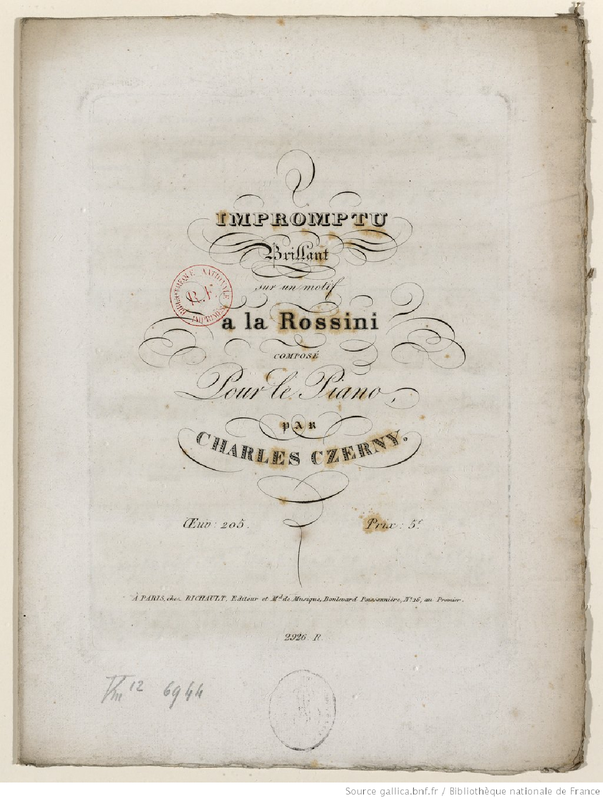 IMPROMPTU
Brillant
sur un motif
a la Rossini
COMPOSÉ
Pour le Piano,
PAR
CHARLES CZERNY.
Œuv: 205.
Prix: 5f
BIBLIOTHEQUE NATIONALE
R.F
A PARIS, chez RICHAULT, Editeur et Md. de Musique, Boulevard Poissonnière, No. 16, au Premier.
2926 R.
Vm 12 6944
Source gallica.bnf.fr / Bibliothèque nationale de France